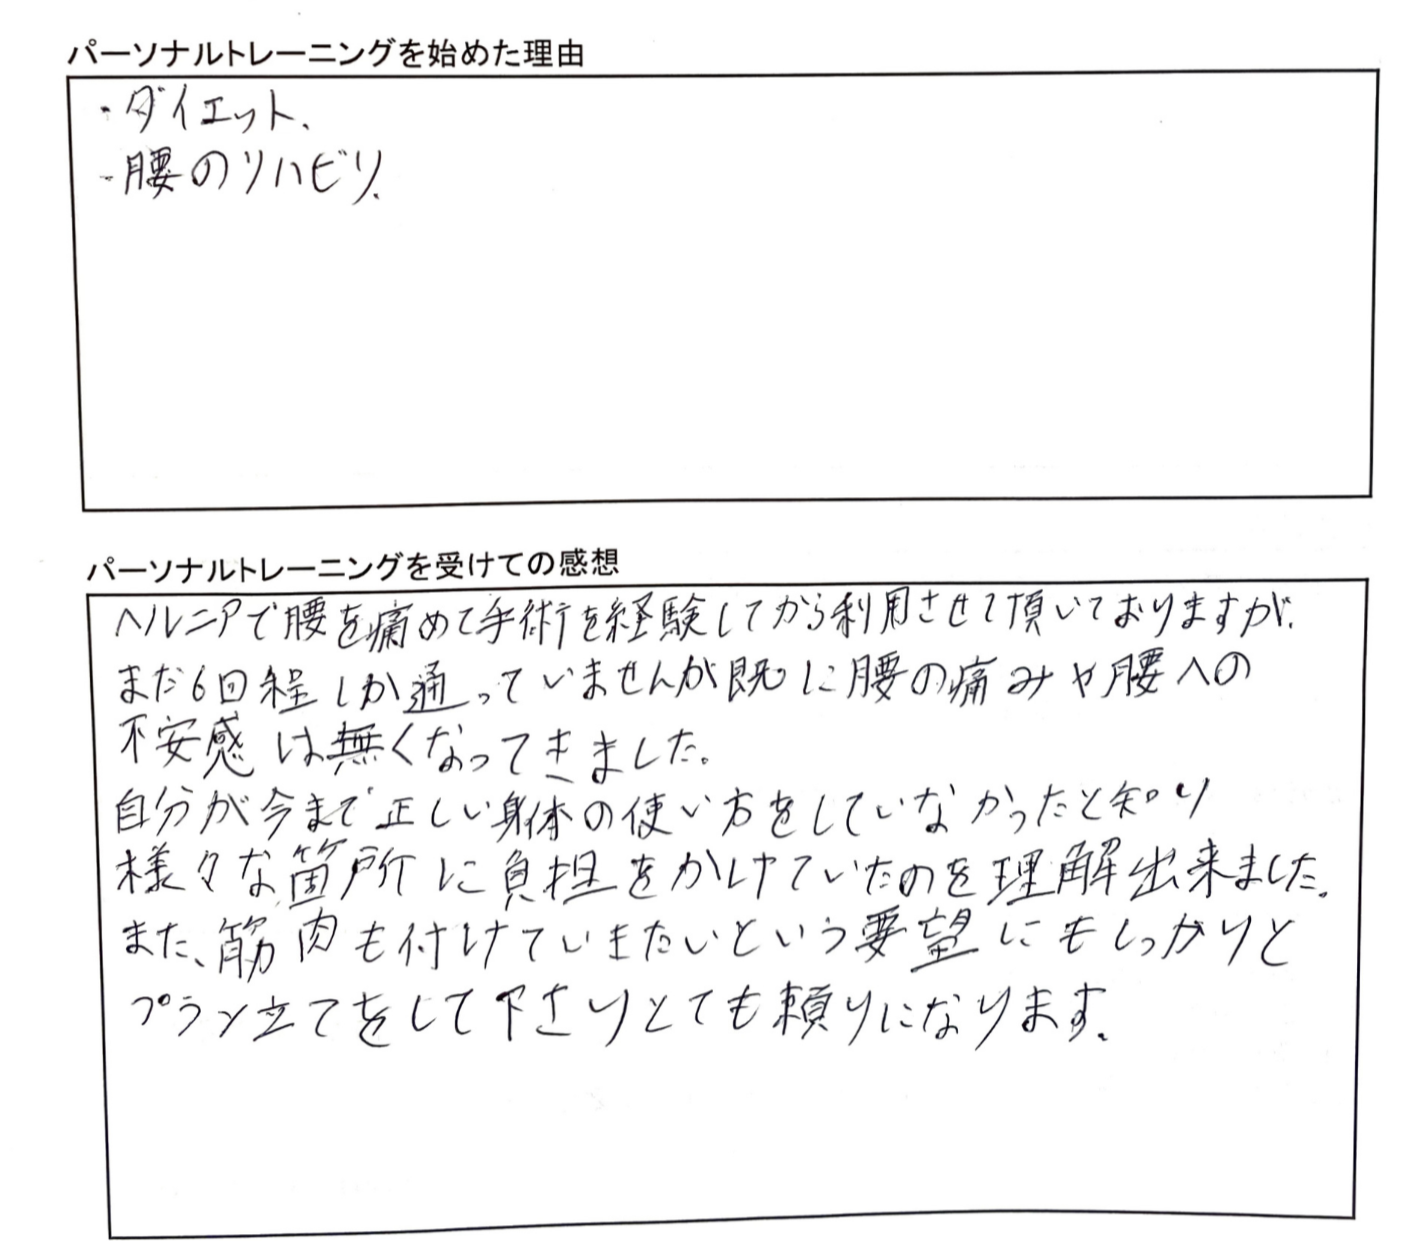 パーソナルトレーニングを始めた理由
・ダイエット、
・腰のリハビリ、
パーソナルトレーニングを受けての感想
ヘルニアで腰を痛めて手術を経験してから利用させて頂いておりますが、
まだ6回程しか通っていませんが既に腰の痛みや腰への
不安感は無くなってきました。
自分が今まで正しい身体の使い方をしていなかったと知り
様々な箇所に負担をかけていたのを理解出来ました。
また、筋肉も付けていきたいという要望にもしっかりと
プラン立てをして下さりとても頼りになります。